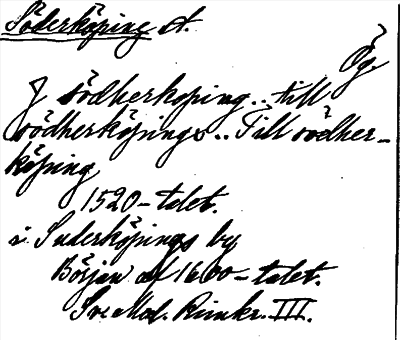 Söderköping st.
Ög
J södherkoping.. till
södherköpings.. Till södher-
köping
1520-talet.
i Suderköpings by
Början af 1600-talet.
Sve Med. Rimkr. III.